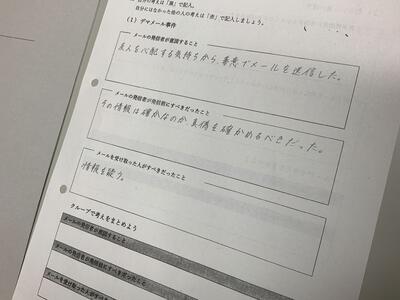 自分の考えは「黒」で記入。
自分にはなかった他の人の考えは「赤」で記入しましょう。
(1) デマメール事件
メールの発信者が意図すること
友人を心配する気持ちから、善意でメールを送信した。
メールの発信者が発信前にすべきだったこと
その情報は確かなのか、真偽を確かめるべきだった。
メールを受け取った人がすべきだったこと
情報を疑う。
グループで考えをまとめよう
メールの発信者が意図すること
メールの発信者が発信前にすべきだったこと
メールを受け取った人がすべきだったこと